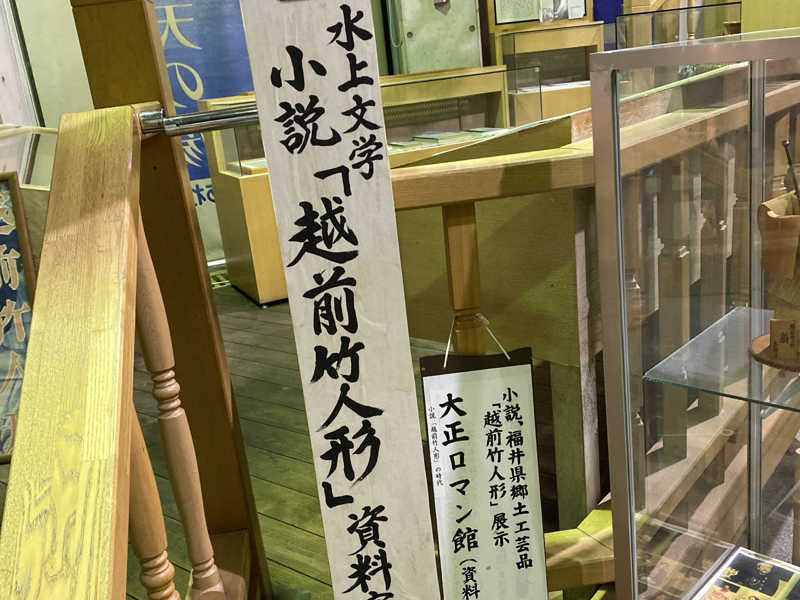 水上文学
小説「越前竹人形」資料
小説、福井県郷土工芸品
「越前竹人形」展示
大正ロマン館(資料
小説「越前竹人形」の時代
越前竹人
天の